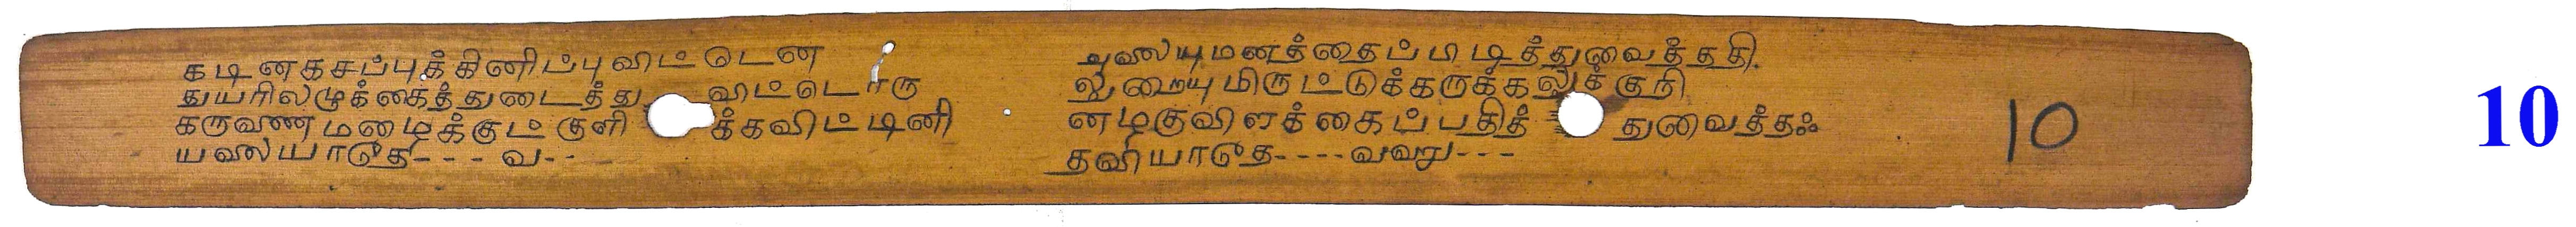 கடினகசப்புக்கினிப்புவிட்டென
துயரிலழுக்கைத்துடைத்து விட்டொரு
கருவண மழைக்குட் குளி க்கவிட்டினி
யலையாடுத - - - வ - -
அலையுமனத்தைப் பிடித்துவைத்ததி
லுறையுமிருட்டுக்கருக்கலுக்குரி
னழகுவிளக்கைப்பதித் துவைத்தஃ
தவியாடுத - - - - வவறு - - -
10
10